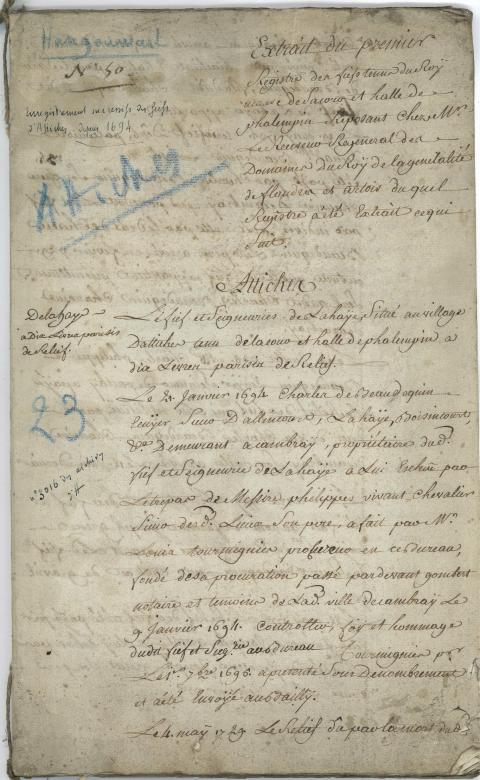 Hangouwart
N.° 50.
Enregistrement successifs des fiefs
d'Attiches, depuis 1694
Attiches
Extrait du premier
Registre des fiefs tenus du Roy
a cause de sa cour et halle de
phalempin reposant chez M.r
Le Receveur Regeneral des
Domaines du Roy de la generalité
de flandres et artois du quel
Registre a été Extrait ce qui
Suit.
Attiches
Delahaye
a Dix Livres parisis
de Relief.
Le fief et Seigneuries de Lahaye, Situé au village
Dattiches tenu de la cour et halle de phalempin a
dix Livres parisis de Relief.
23
n° 3016 du
Le 21 Janvier 1694 Charles de Beaudequin
Ecuyer Sieur D'allincourt, Lahaye, Boisincourt,
Demeurant a cambray, propriétaire dud.t
fief et Seigneurie de Lahaye a Lui Echue par
Le trepas de Messire philippes vivant Chevalier
Sieur desd. Lieux Son pere, a fait par M.re
Louis tourmignies procureur en ce bureau,
fondé de sa procuration passé pardevant gombert
notaire et temoins de Lad. ville de cambray Le
9 Janvier 1694. controllée, foy et hommage
dudit fief et Seig.rie au bureau Tourmignies
Le 1.er 7bre 1695 a presenté Son Denombrement
et a été Envoyé au Bailly.
Le 4 may 1729 Le Relief du par la mort dud.